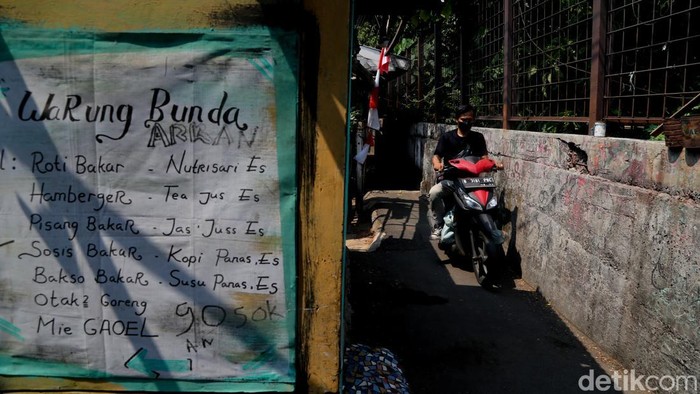 Warung Bunda
ARKAN
Roti Bakar - Nutrisari Es
Hamberger - Tea jus Es
Pisang Bakar - Jas'Juss Es
Sosis Bakar - Kopi Panas, Es
Bakso Bakar - Susu Panas, Es
Otak2 Goreng
Mie GAOEL
gosok
detikcom